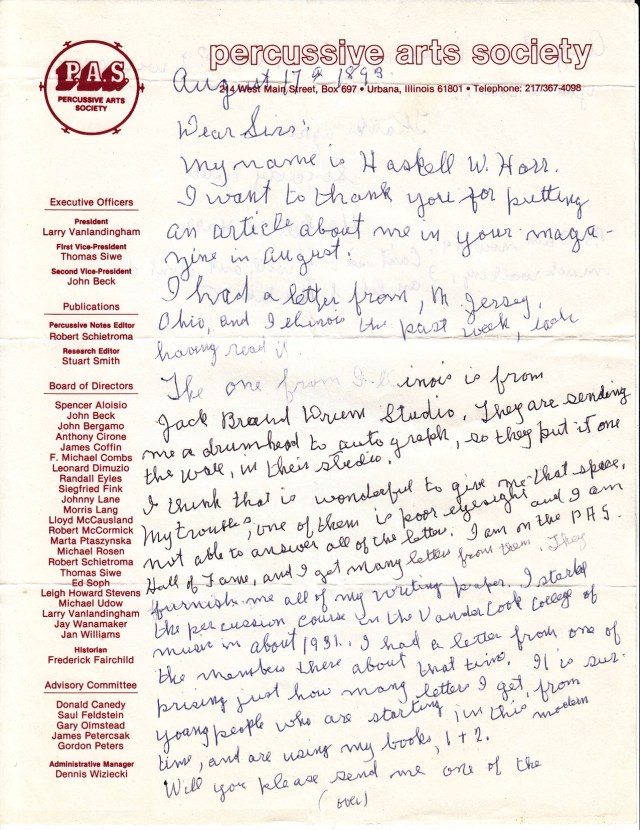 percussive arts society
PAS
PERCUSSIVE ARTS
SOCIETY
214 West Main Street, Box 697 • Urbana, Illinois 61801 • Telephone: 217/367-4098
August 17th 1893.
Dear Sirs:
My name is Haskell W. Harr.
I want to thank you for putting
an article about me in your maga-
zine in august.
I had a letter from, N. Jersey,
Ohio, and Illinois the past week, each
having read it.
The one from Illinois is from
Jack Brand Drum Studio. They are sending
me a drumhead to autograph, so they put it one
the wall, in their studio.
I think that is wonderful to give me that space.
My troubles, one of them is poor eyesight and I am
not able to answer all of the letters. I am on the PAS.
Hall of Fame, and I get many letters from them. They
furnish me all of my writing paper. I started
the percussion course in the VanderCook College of
music in about 1931. I had a letter from one of
the members there about that time. It is sur-
prising just how many letters I get, from
young people who are starting in this modern
time, and are using my books, 1 + 2.
Will you please send me one of the
(over)
Executive Officers
President
Larry Vanlandingham
First Vice-President
Thomas Siwe
Second Vice-President
John Beck
Publications
Percussive Notes Editor
Robert Schietroma
Research Editor
Stuart Smith
Board of Directors
Spencer Aloisio
John Beck
John Bergamo
Anthony Cirone
James Coffin
F. Michael Combs
Leonard Dimuzio
Randall Eyles
Siegfried Fink
Johnny Lane
Morris Lang
Lloyd McCausland
Robert McCormick
Marta Ptaszynska
Michael Rosen
Robert Schietroma
Thomas Siwe
Ed Soph
Leigh Howard Stevens
Michael Udow
Larry Vanlandingham
Jay Wanamaker
Jan Williams
Historian
Frederick Fairchild
Advisory Committee
Donald Canedy
Saul Feldstein
Gary Olmstead
James Petercsak
Gordon Peters
Administrative Manager
Dennis Wiziecki